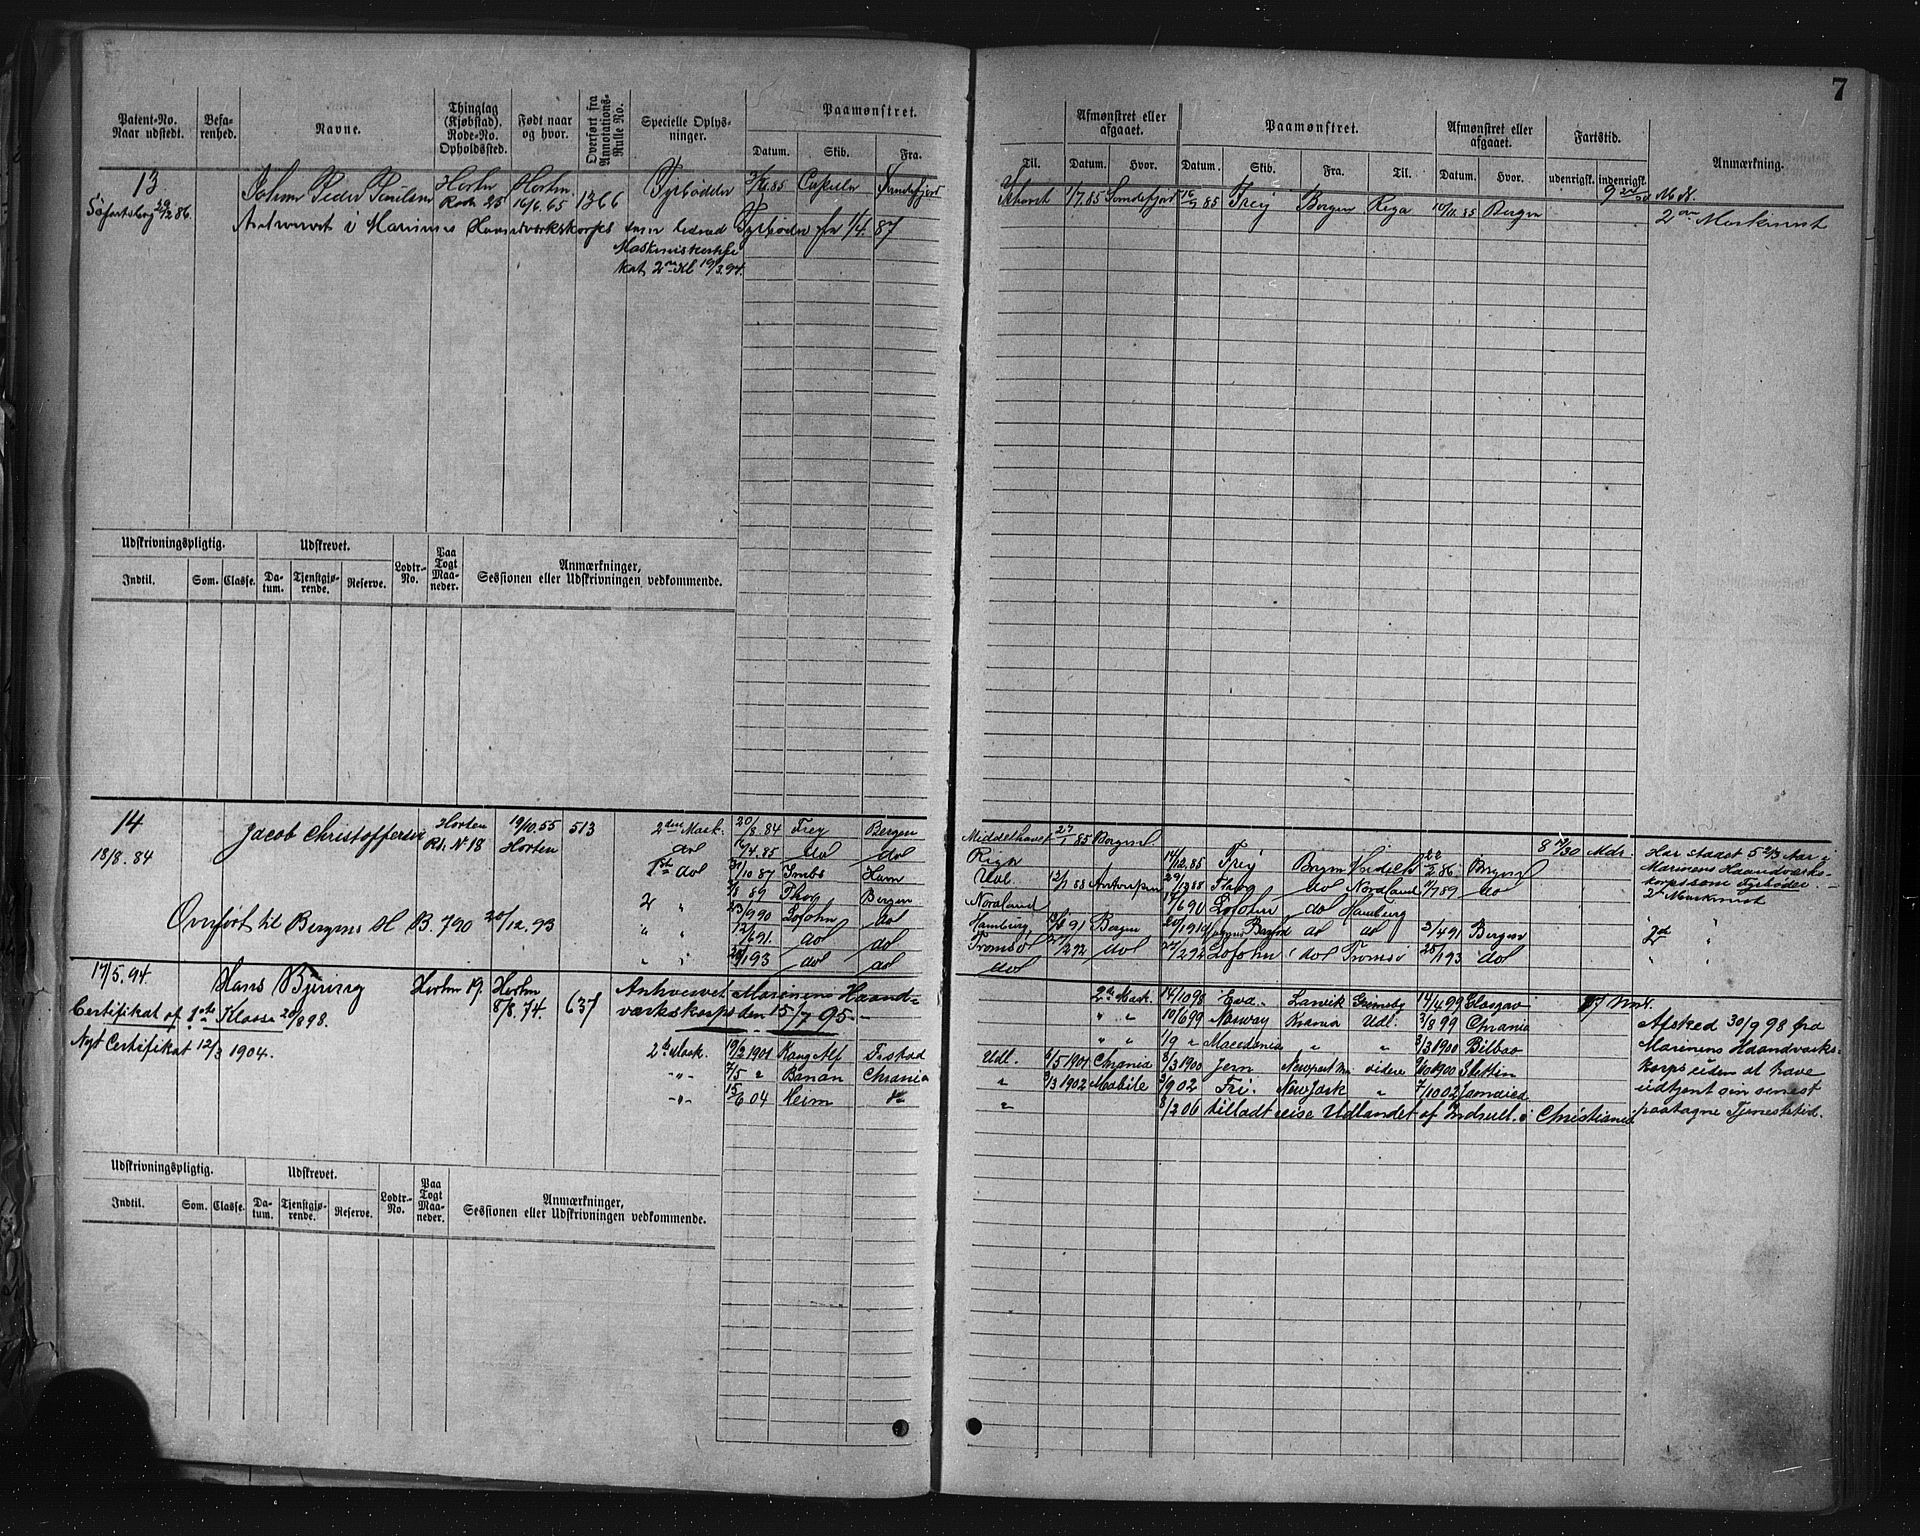 7
Patent-No. Naar udstedt. Befarenhed. Navne. Thinglag (Kjøbstad). Rode-No. Opholdssted. Født naar og hvor. Overført fra Annotations-Rulle No. Specielle Oplysninger. Paamønstret. Datum. Skib. Fra.
Til. Afmønstret eller afgaaet. Datum. Hvor. Paamønstret. Datum. Skib. Fra. Til. Afmønstret eller afgaaet. Datum. Hvor. Fartstid. udenrigsk. indenrigsk. Anmærkning.
13 Johan Peder Horten Horten 1366 Fyrbøder
Rode 25 16/6.65
1/7.85 Sandefjord 85 Frey Bergen Riga 10/11.85 Bergen
2den Maskinist
i Marinens Haandværkskorps Fyrbøder fra 1/4.87
2den Kl 19/3.94.
Udskrivningspligtig. Udskrevet. Lodtr.-No. Paa Togt Maaneder. Anmærkninger, Sessionen eller Udskrivningen vedkommende.
Indtil. Som. Classe. Datum. Tjenstgjørende. Reserve.
14 Jacob Christoffersen Horten 19/10.55 513 2den Mask. 20/8.84 Frey Bergen
18/8.84 Rd. N 18 Horten
4.85 do do
1ste do 10 87 Ham
89 Thor Bergen
Overført til Bergens Hl B. 790 20/12.93
23/9 90 Lofohn do
12/6 91. do do
1 93 do do
Middelhavet 27/1 85 Bergen
Riga 14/12.85 Frey Bergen 22/2 86 Bergen
12/1 88 Antwerpen 29/12 88 Thor do Nordland 7 89 do
Nordland 6 90 Lofohn do Hamburg
Hamburg 91 Bergen do do 3/4 91 Bergen
Tromsø 2 92 do 27/2 92 Lofohn do Tromsø 25/1 93 do
do
Har staaet 5 2/3 Aar i
Marinens Haandværks-
korps som Fyrbøder.
2den Maskinist
17/5.94. Hans Bjerring Horten 19. Horten 637 Anhvervet Marinens Haand-
8/8.74. værkskorps den 15/7 95
Certifikat af 1ste Klasse 20/8 98.
Nyt Certifikat 12/3 1904.
2den Mask. 19/2 1901 Kong Alf F.stad
7/5 Banan Chrania
15/6 04 Heim
2den Mask. 14/10 98 Eva Larvik Grimsby 14/4 99 Glasgow
10/6 99 Norway Krania Udl. 3/8 99 Chrania
1/9 Macedonia 3/3 1900 Bilbao
Udl. 6/5 1901 Chrania 8/3 1900 Jern Newport videre 9/10 1900 Stettin
3/3 1902 Mobile 3/9 02 Fri. New Jork 7/10 02 Jamaica
8/2 06 tilladt reise Udlandet af Indrull. i Christiania
Afsked 30/9 98 fra
Marinens Haandværks-
korps uden at have
udtjent sin senest
paatagne Tjenestetid.
Udskrivningspligtig. Udskrevet. Lodtr.-No. Paa Togt Maaneder. Anmærkninger, Sessionen eller Udskrivningen vedkommende.
Indtil. Som. Classe. Datum. Tjenstgjørende. Reserve.